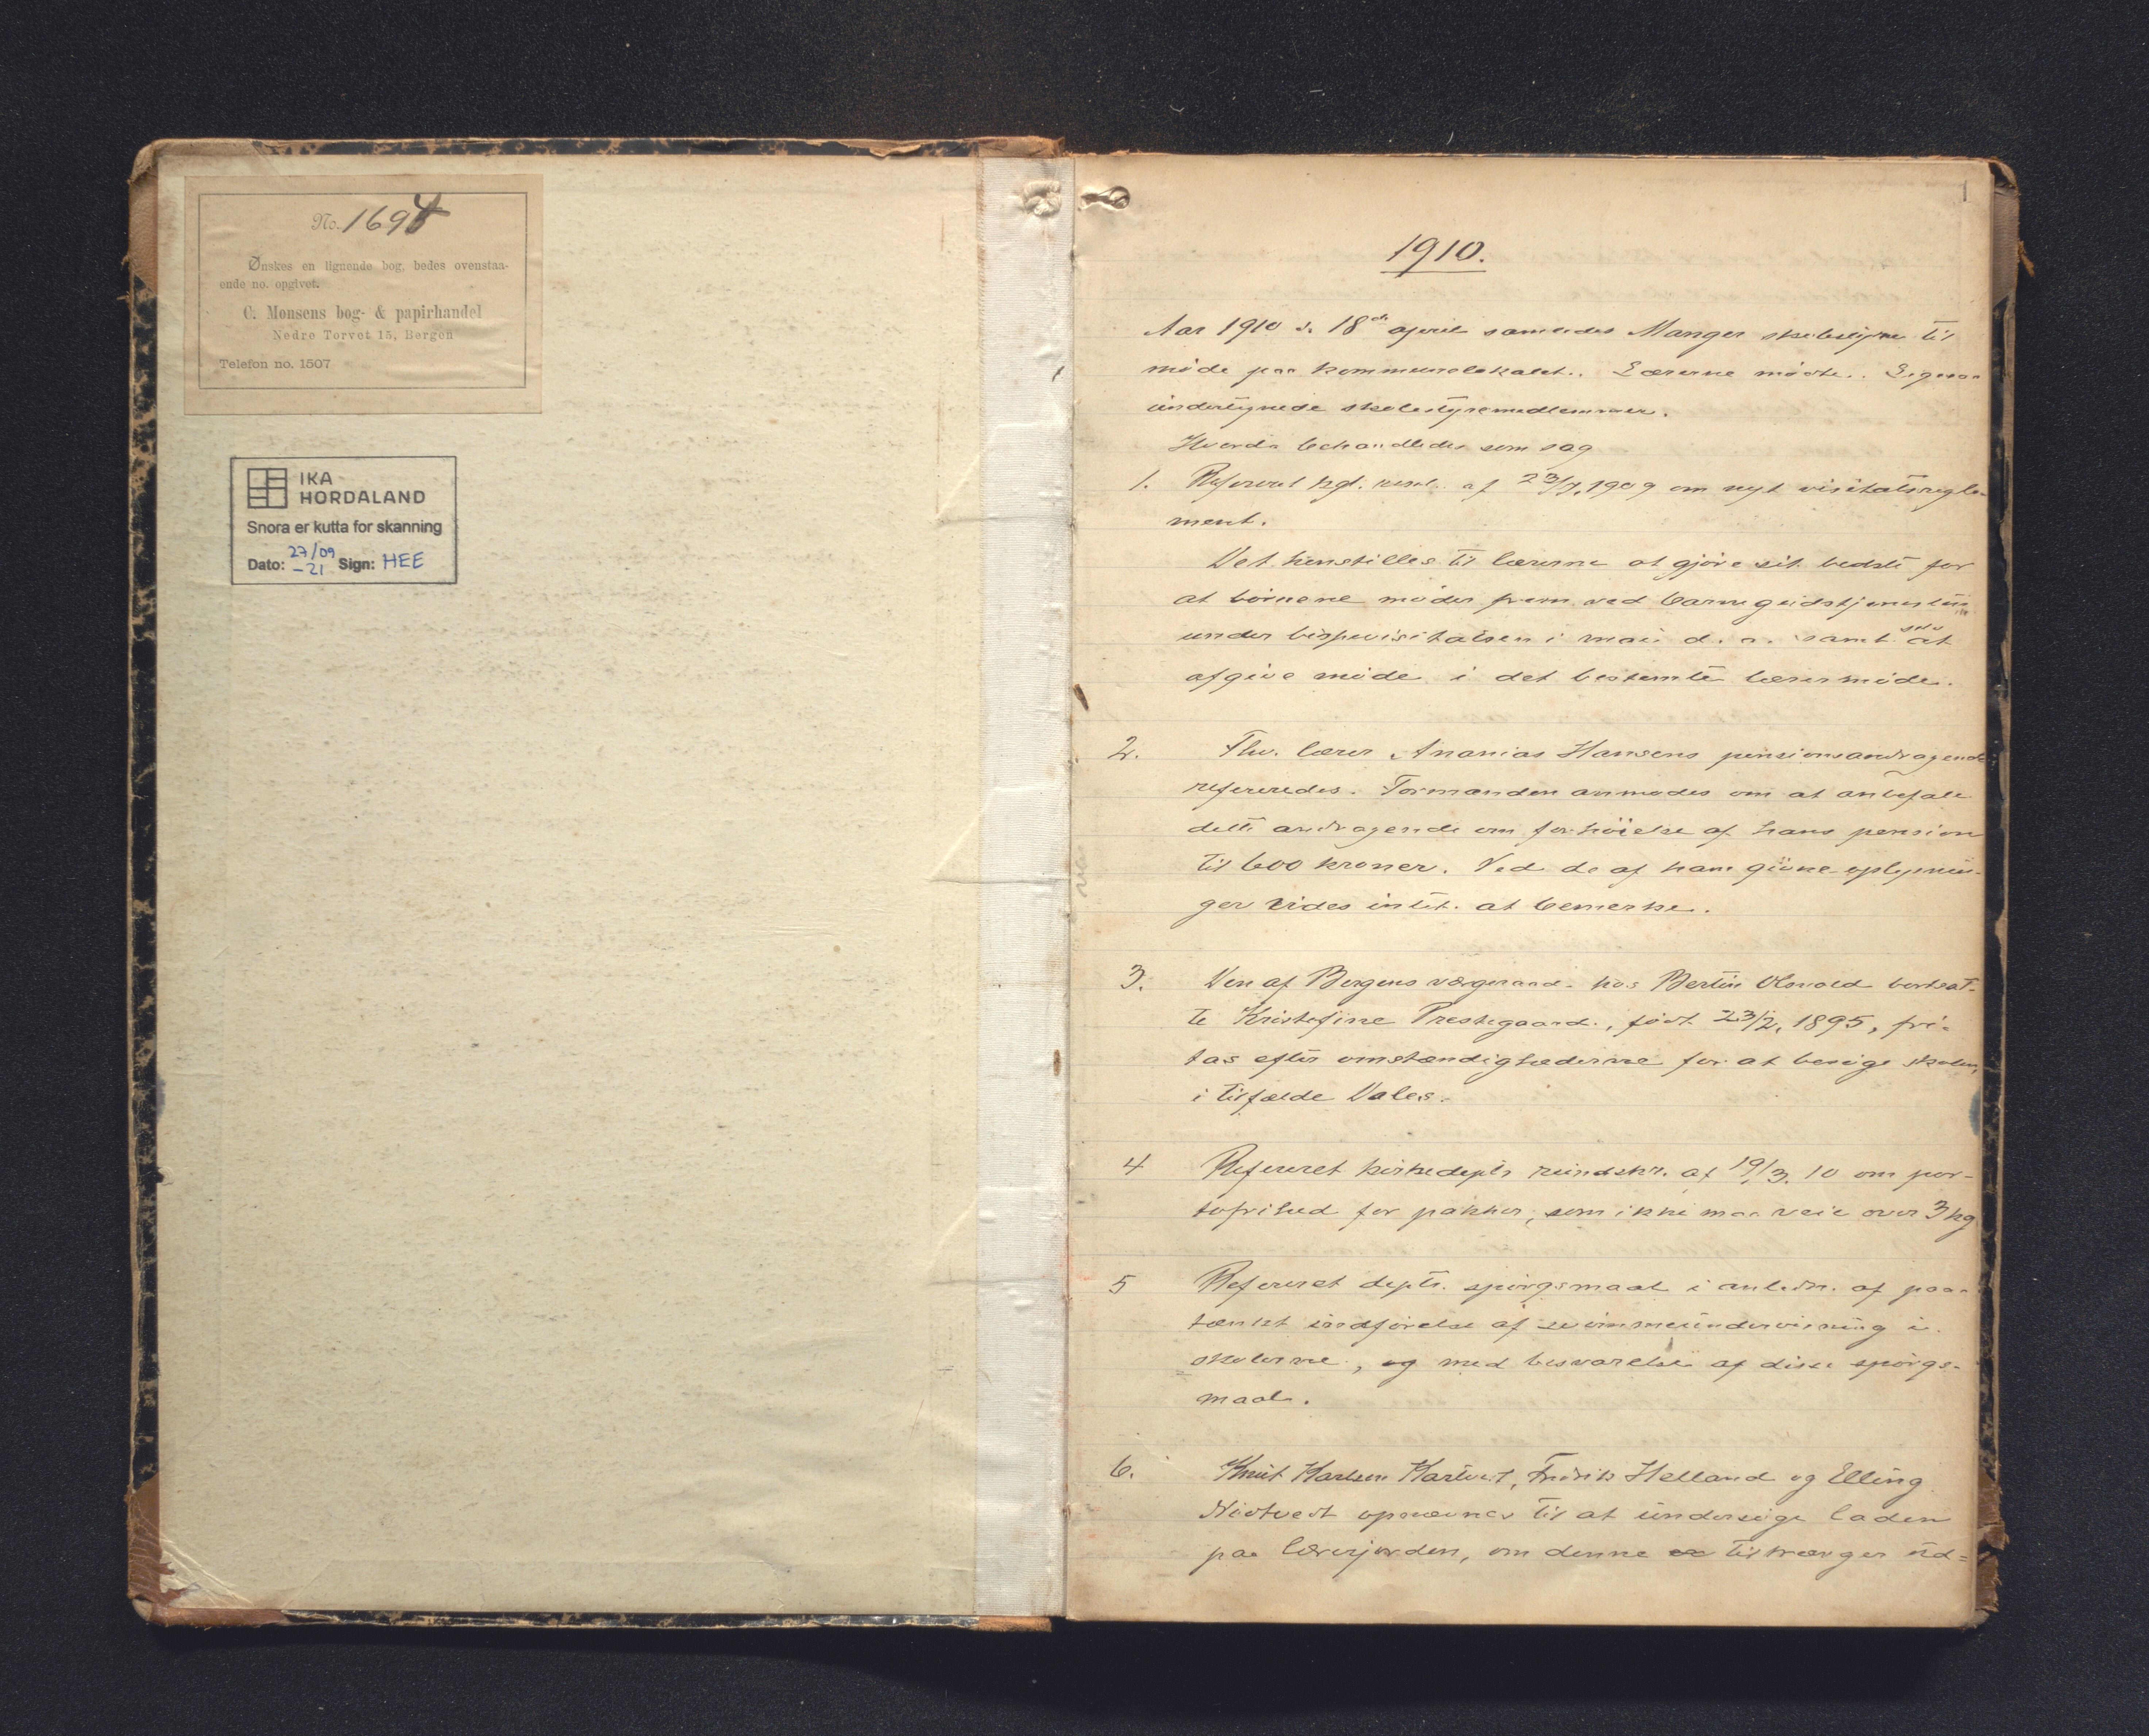 No. 1694
Ønskes en lignende bog, bedes ovenstaa-
ende no. opgivet.
C. Monsens bog- & papirhandel
Nedre Torvet 15, Bergen
Telefon no. 1507
IKA
HORDALAND
Snora er kutta for skanning
Dato: 27/09 -21 Sign: HEE
1
1910.
Aar 1910 d. 18de april samledes Manger skolestyre til
møde paa kommunelokalet. Lærerne mødte. Ligesaa
undertegnede skolestyremedlemmer.
Hvorda behandledes som sag
1. Referert kgl. resol. af 23/7. 1909 om nyt visitatsregle-
ment.
Det henstilles til lærerne at gjøre sit bedste for
at börnene möder frem ved barnegudstjenesten
under bispevisitatsen i mai d. a. samt selv at
afgive möde i det bestemte lærermöde.
2. Fhv. lærer Ananias Hansens pensionsandragende
refereredes. Formanden anmodes om at anbefale
dette andragende om forhöielse af hans pension
til 600 kroner. Ved de af ham givne oplysnin-
ger vides intet at bemerke.
3. Den af Bergens vergeraad hos Bertin bortsat-
te Kristofine Prestegaard, födt 23/2. 1895, fri-
tas efter omstændighederne for at besöge skolen,
i tilfælde Dales.
4 Referert kirkedepts rundskr. af 19/3. 10 om por-
tofrihed for pakker, som ikke maa veie over 3 kg
5 Referert depts. spörgsmaal i anledn. af paa-
tænkt indförelse af svömmeundervisning i
skolerne, og med besvarelse af disse spörgs-
maal.
6. Knut Karlsen Fredrik Helland og Elling
Nodtvedt opnævnes til at undersöge laden
paa lærerjorden, om denne tiltrænger ud=